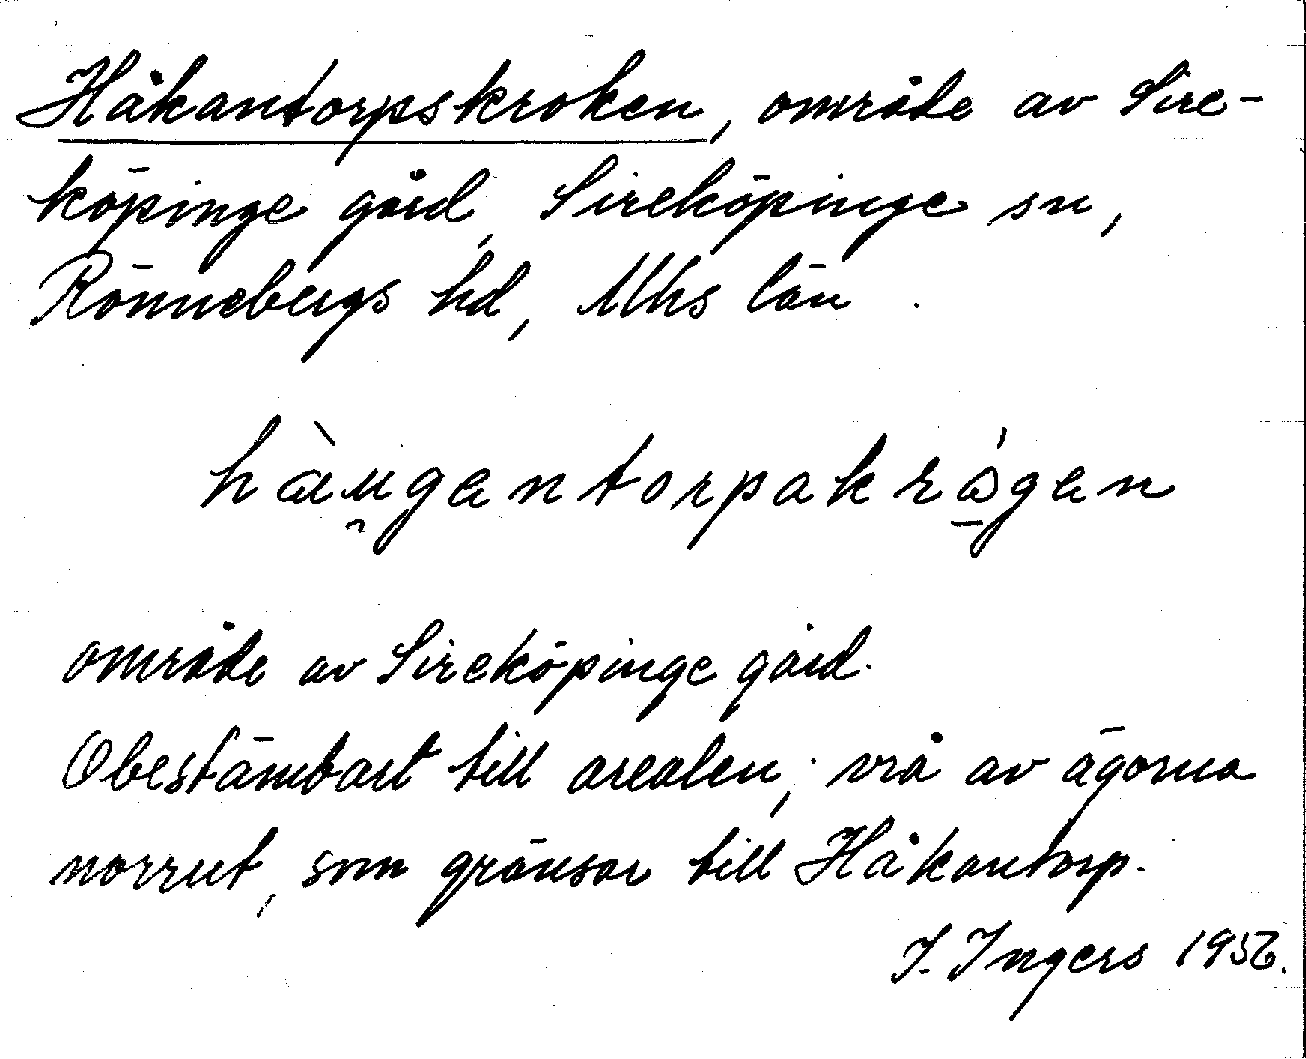 Håkantorpskroken, område av Sire-
köpinge gård, Sireköpinge sn,
Rönnebergs hd, Mhs län.
hàu̯gantorpakrá̱gen
område av Sireköpinge gård.
Obestämbart till arealen; vrå av ägorna
norrut, som gränsar till Håkantorp.
I. Ingers 1956.